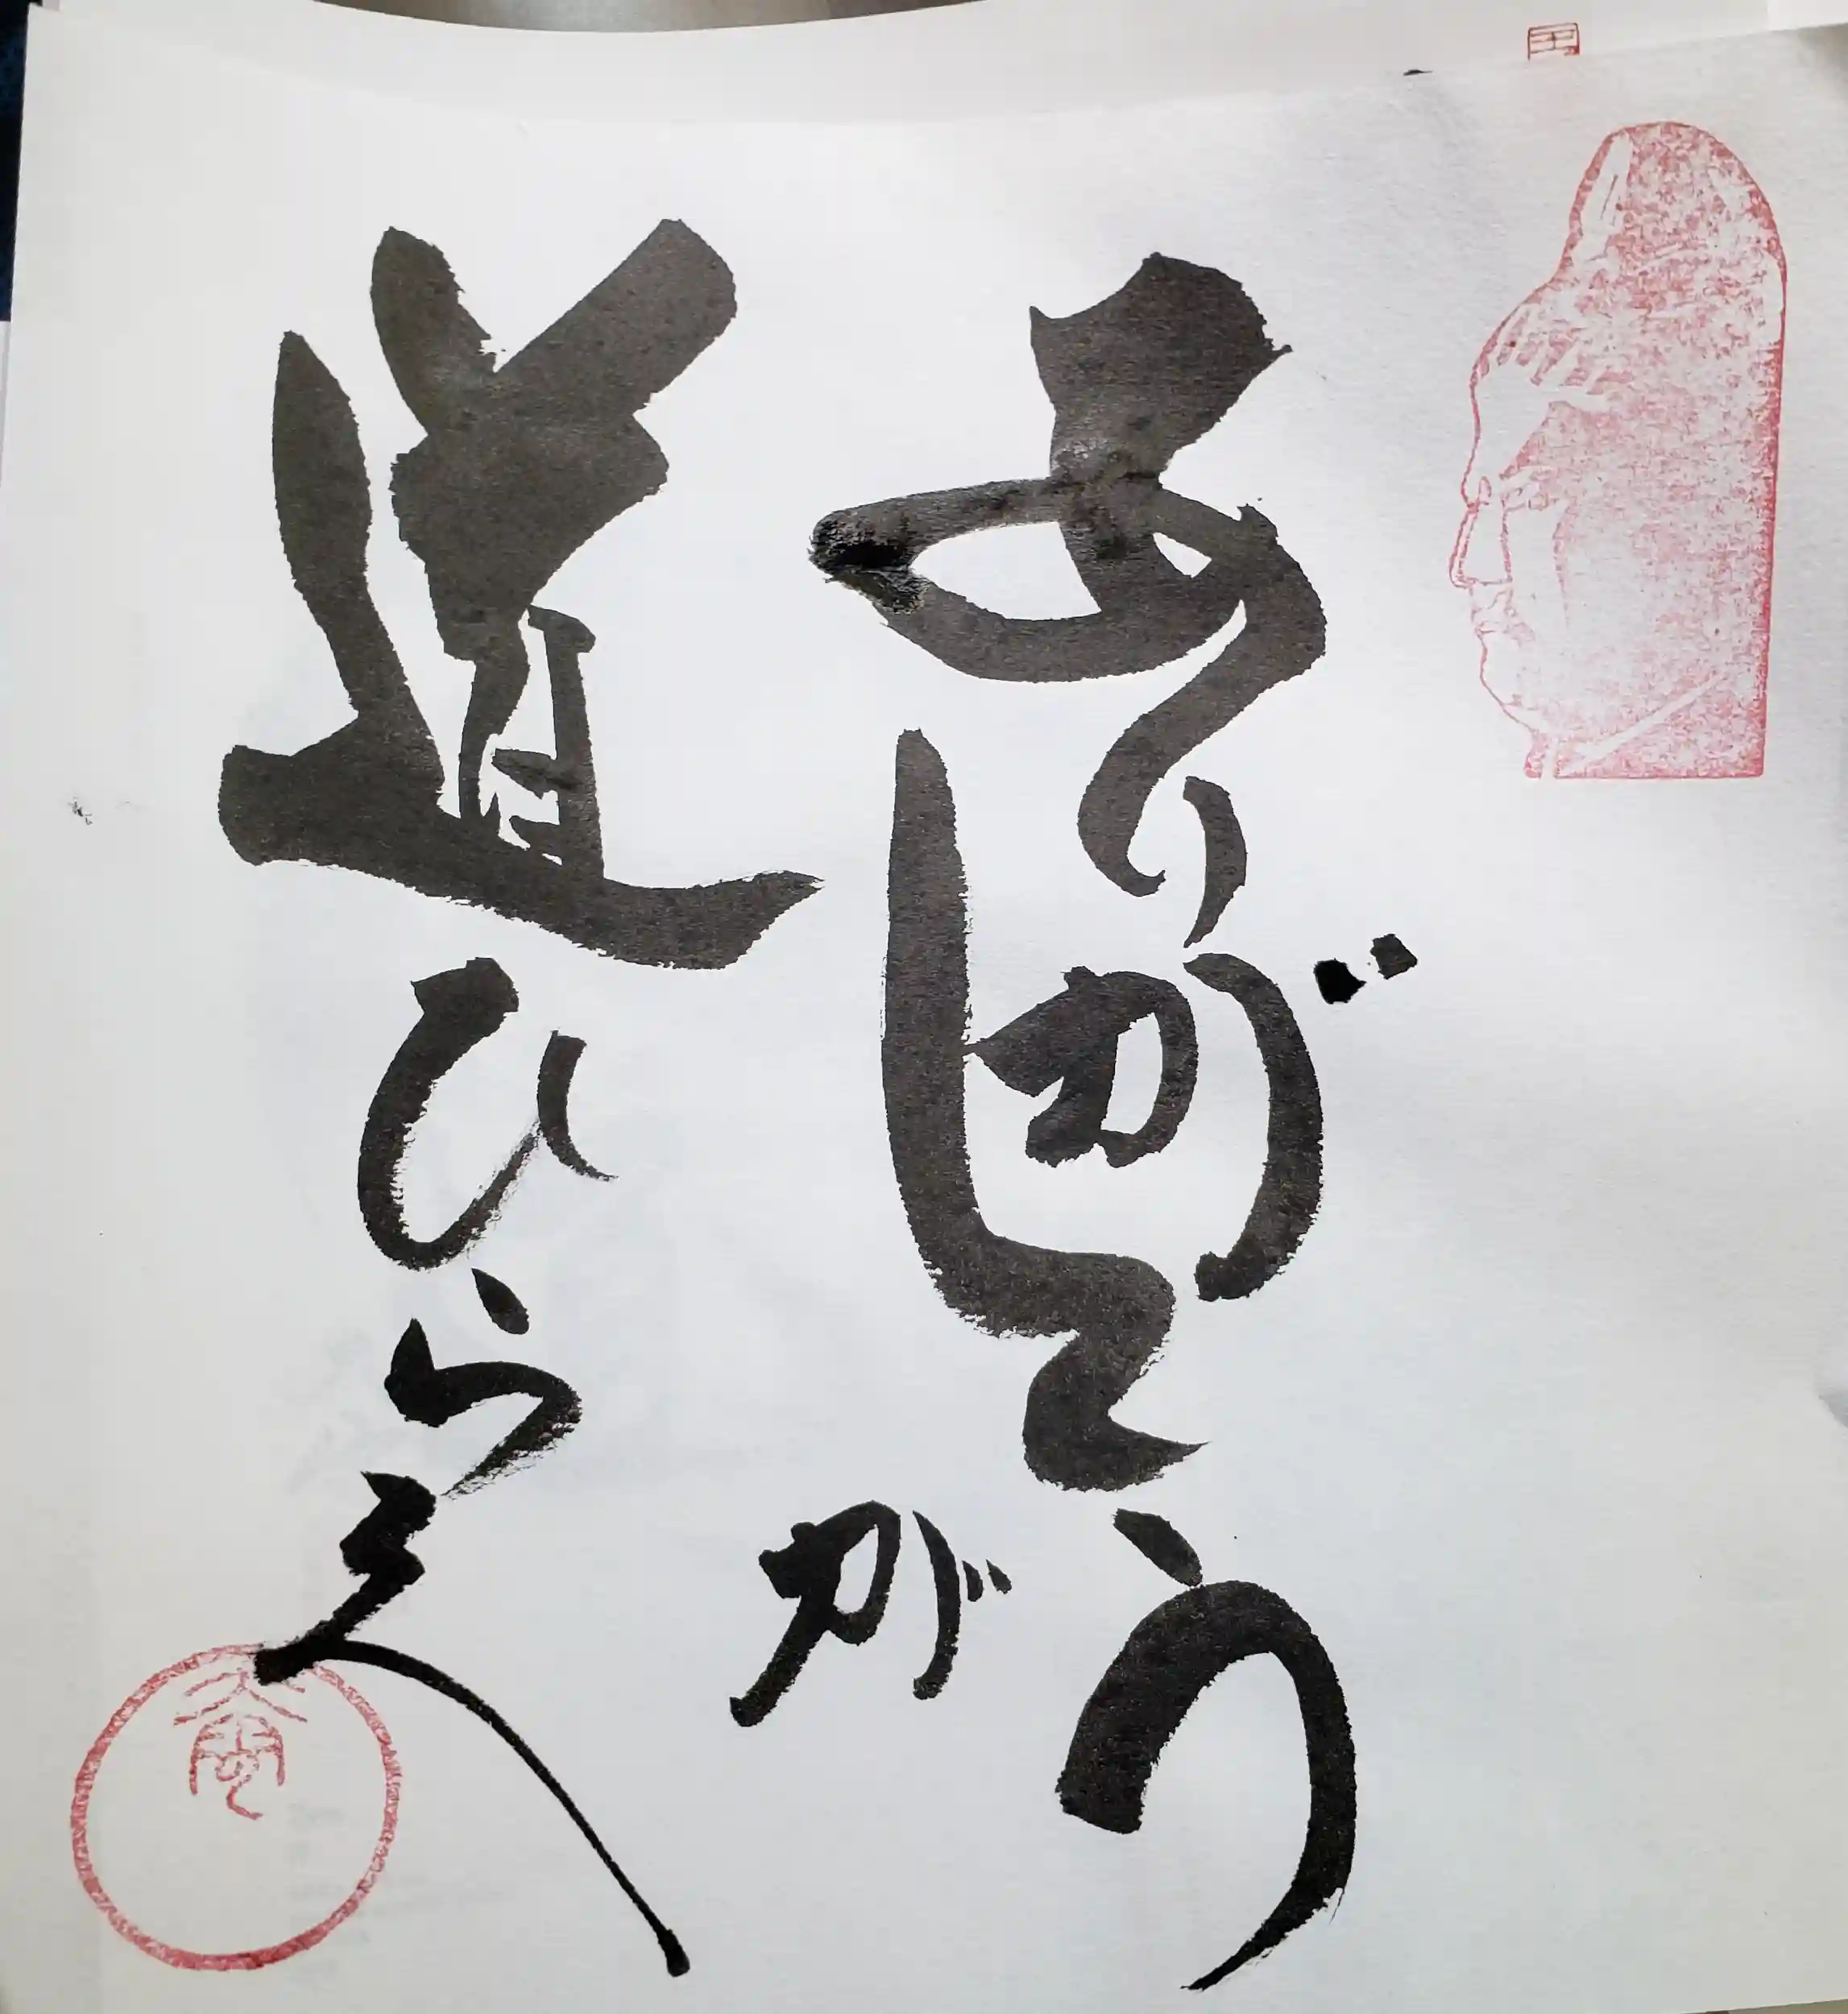 ありがとう
が
道ひらく